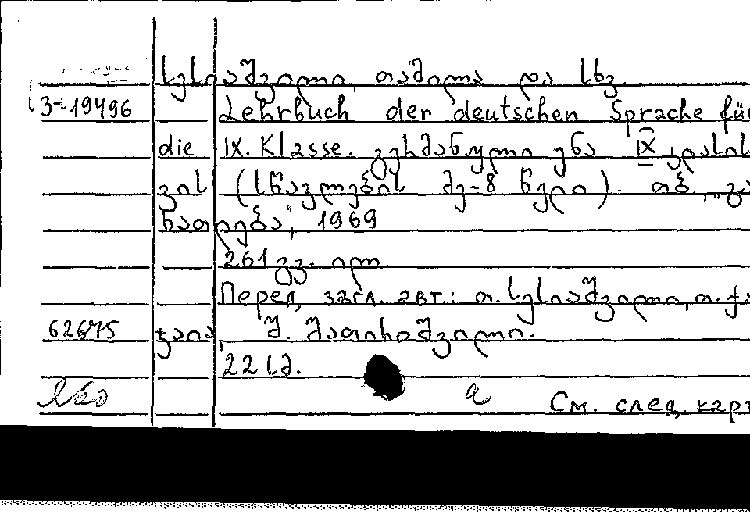 სესიაშვილი, თამილა და სხვ.
3-19496 Lehrbuch der deutschen Sprache für
die IX. Klasse. გერმანული ენა IX კლასის
ვის (სწავლების მე-8 წელი) თბ., „გა
ნათლება", 1969
261 გვ. ილ.
Перед загл. авт.: თ. სესიაშვილი, თ.
62675 შ. მათიაშვილი.
22 სმ.
См. след. карт